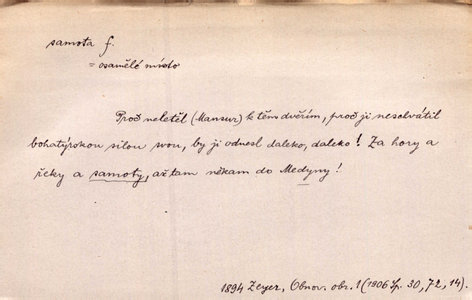 samota f.
= osamělé místo
Proč neletěl (Mansur) k těm dvěřím, proč ji neschvátil
bohatýrskou silou svou, by ji odnesl daleko, daleko! Za hory a
řeky a samoty, až tam někam do Medyny!
1894 Zeyer, Obnov. obr. 1 (1906 Sp. 30, 72, 14).